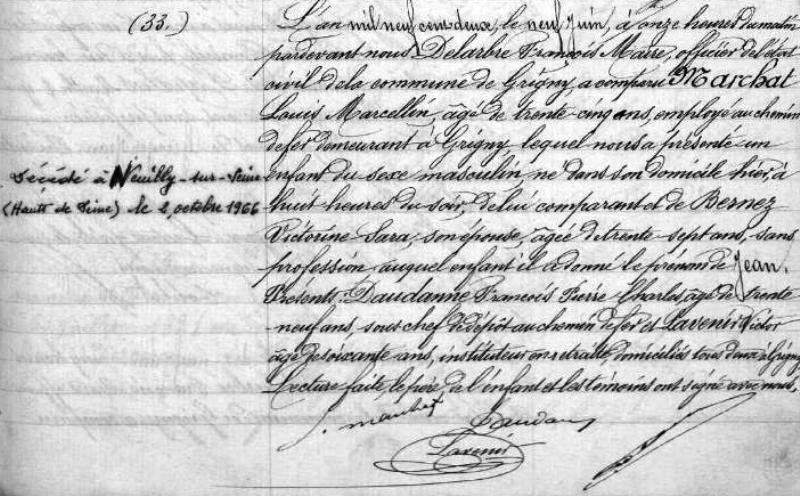 (33.)
L'an mil neuf cent deux, le neuf Juin, à onze heures du matin
pardevant nous Delarbre François Maire, officier de l'état
civil de la commune de Grigny a comparu Marchat
Louis Marcellin, âgé de trente-cinq ans, employé au chemin
de fer demeurant à Grigny, lequel nous a présenté un
enfant du sexe masculin né dans son domicile hier, à
huit heures du soir, de lui comparant et de Bernez
Victorine Sara, son épouse, âgée de trente-sept ans, sans
profession, auquel enfant il a donné le prénom de Jean.
Présents: Daudanne François Pierre Charles, âgé de trente
neuf ans, sous chef de dépôt au chemin de fer et Lavenir Victor
âgé de soixante ans, instituteur en retraite domiciliés tous deux à Grigny
Lecture faite, le père de l'enfant et les témoins ont signé avec nous,
Décédé à Neuilly-sur-Seine
(Hauts de Seine) le 2 octobre 1966
Lavenir